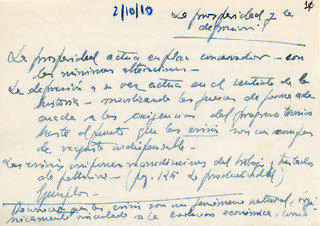 2/10/10
La prosperidad y la
depresión
La prosperidad actua en plan conservador - con
las mínimas alteraciones -
La depresión a su vez actua en el sentido de la
historia - mostrando las fuerzas de forma ade
cuada a las exigencias del progreso técnico
hasta el punto que las crisis son un campo
de registro indispensable -
Las crisis condiciones del trabajo,
de (pag. 125 La productividad)
Ejemplos -
las crisis son un fenómeno natural, orgá
nicamente vinculado a la evolución económica, como